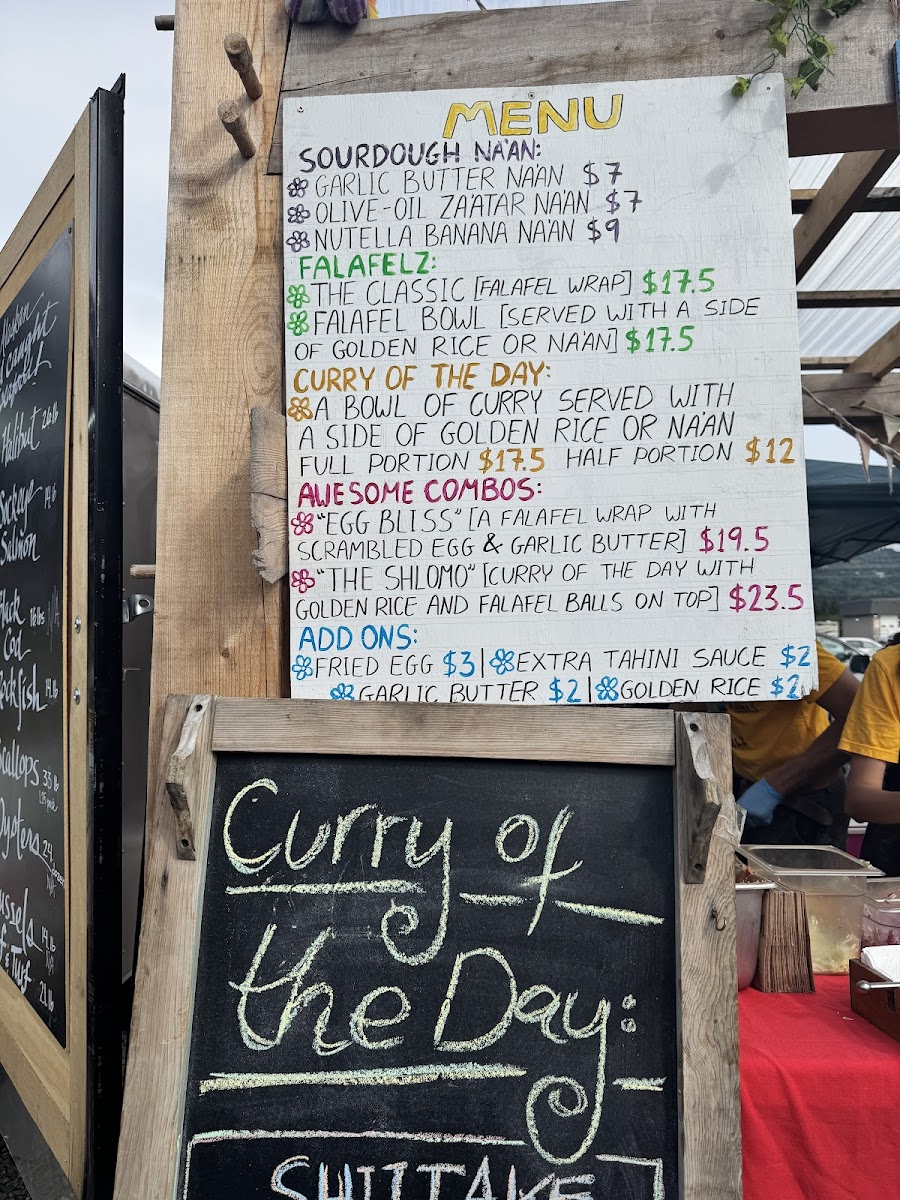 MENU
SOURDOUGH NA'AN:
GARLIC BUTTER NA'AN $7
OLIVE-OIL ZA'ATAR NA'AN $7
NUTELLA BANANA NA'AN $9
FALAFELZ:
THE CLASSIC [FALAFEL WRAP] $17.5
FALAFEL BOWL [SERVED WITH A SIDE
OF GOLDEN RICE OR NA'AN] $17.5
CURRY OF THE DAY:
A BOWL OF CURRY SERVED WITH
A SIDE OF GOLDEN RICE OR NA'AN
FULL PORTION $17.5 HALF PORTION $12
AWESOME COMBOS:
"EGG BLISS" [A FALAFEL WRAP WITH
SCRAMBLED EGG & GARLIC BUTTER] $19.5
"THE SHLOMO" [CURRY OF THE DAY WITH
GOLDEN RICE AND FALAFEL BALLS ON TOP] $23.5
ADD ONS:
FRIED EGG $3 | EXTRA TAHINI SAUCE $2
GARLIC BUTTER $2 | GOLDEN RICE $2
Curry of
the Day:
SHIITAKE
Halibut
Sockeye
Salmon
Cod
Rockfish
Scallops
Oysters